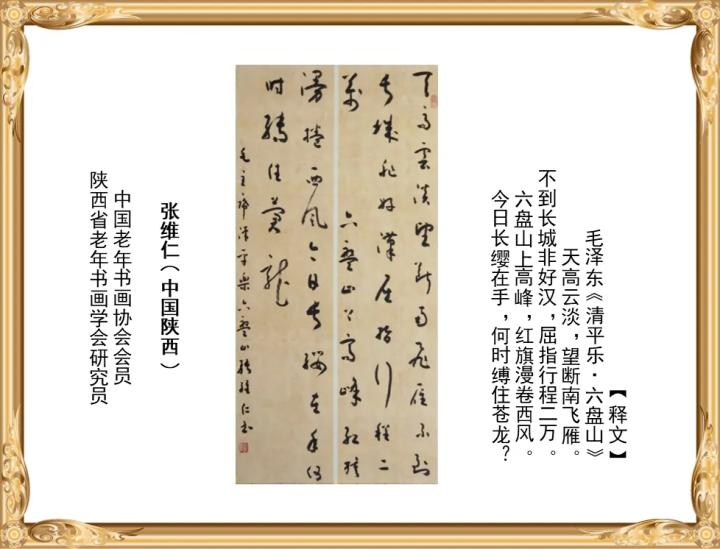 【释文】
毛泽东《清平乐·六盘山》
天高云淡，望断南飞雁。
不到长城非好汉，屈指行程二万。
六盘山上高峰，红旗漫卷西风。
今日长缨在手，何时缚住苍龙？
天高雲淡望断南飛雁不到
长城非好漢屈指行程二
萬 六盘山上高峰红旗
漫捲西风今日长缨在手何
时缚住蒼龍
毛主席清平樂六盘山张维仁书
张维仁（中国陕西）
中国老年书画协会会员
陕西省老年书画学会研究员